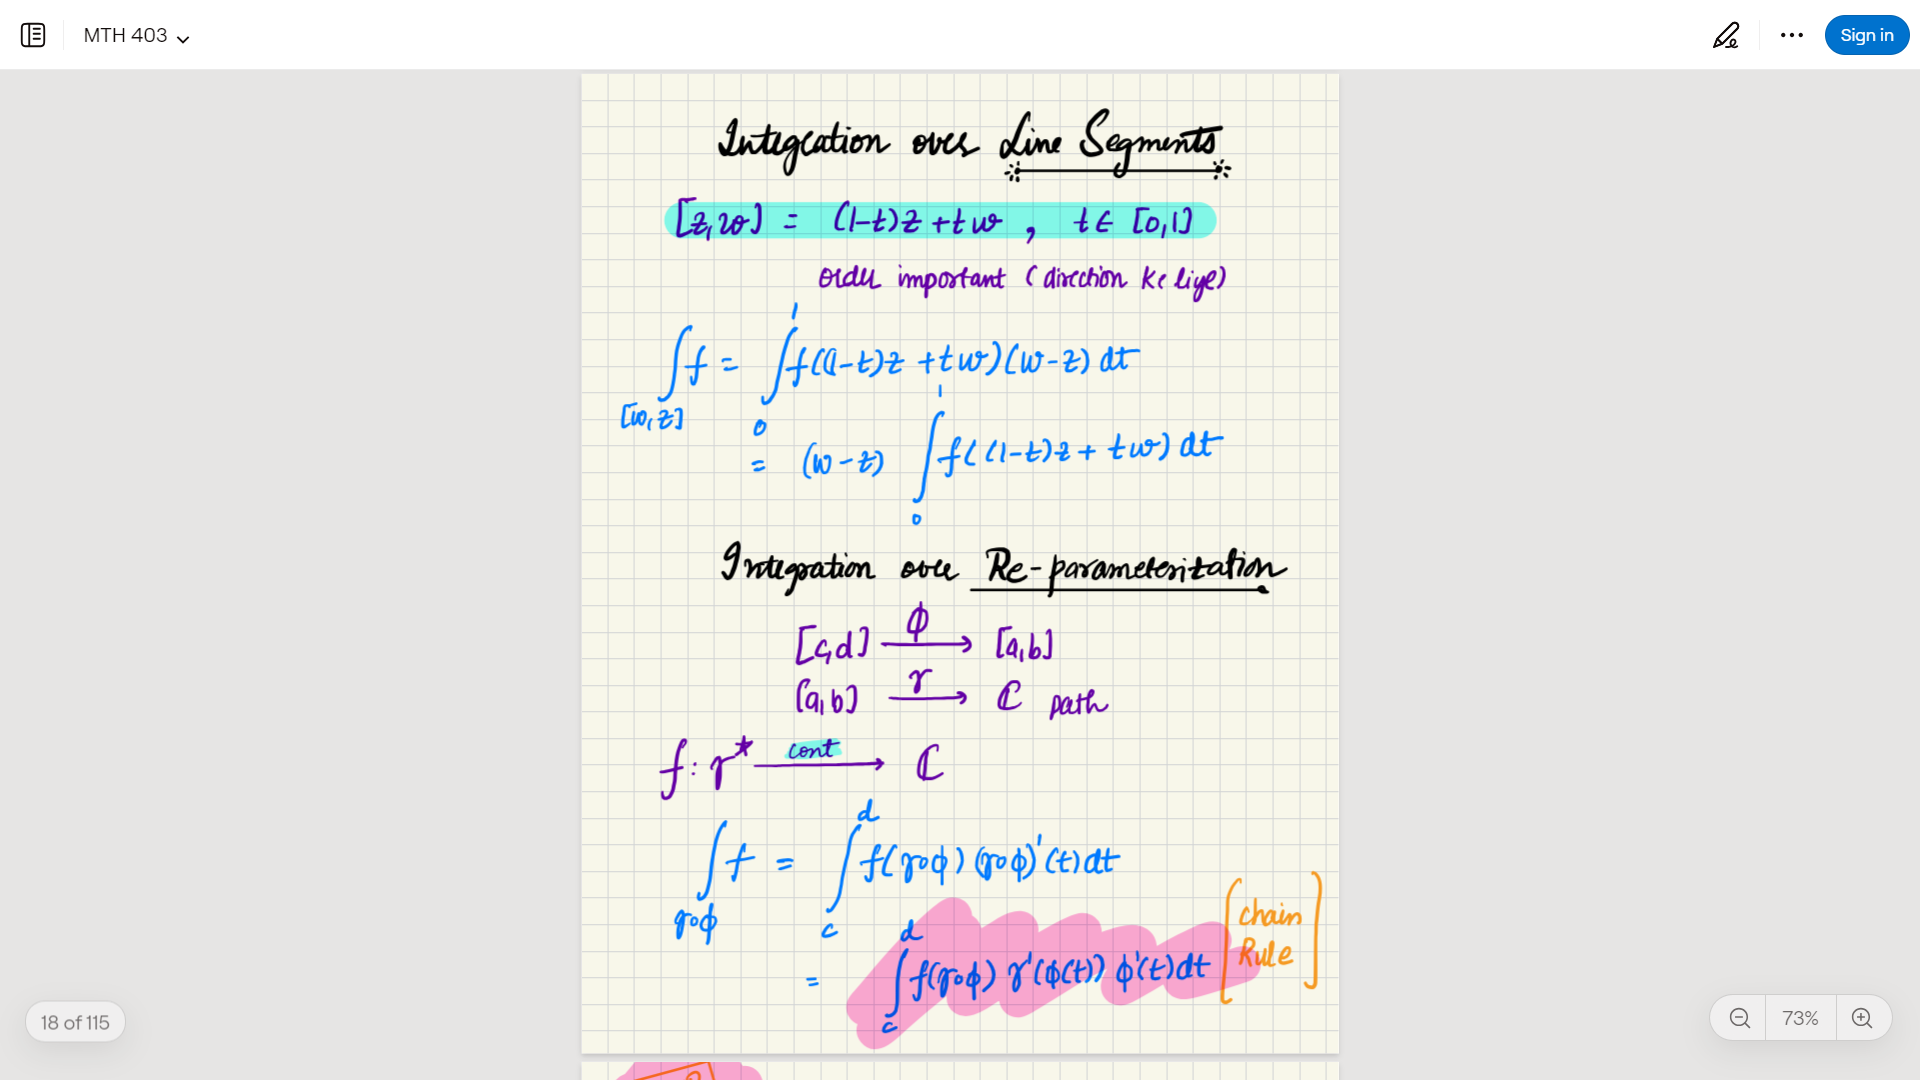 MTH 403
Sign in
Integration over Line Segments
[z,w] = (1-t)z + tw , t ∈ [0,1]
order important (direction ke liye)
∫_[w,z] f = ∫_0^1 f((1-t)z + tw)(w-z) dt
= (w-z) ∫_0^1 f((1-t)z + tw) dt
Integration over Re-parameterization
[c,d] ϕ→ [a,b]
[a,b] γ→ ℂ path
f: γ* cont→ ℂ
∫_γ∘ϕ f = ∫_c^d f(γ∘ϕ) (γ∘ϕ)'(t) dt
= ∫_c^d f(γ∘ϕ) γ'(ϕ(t)) ϕ'(t) dt [Chain Rule]
18 of 115
73%